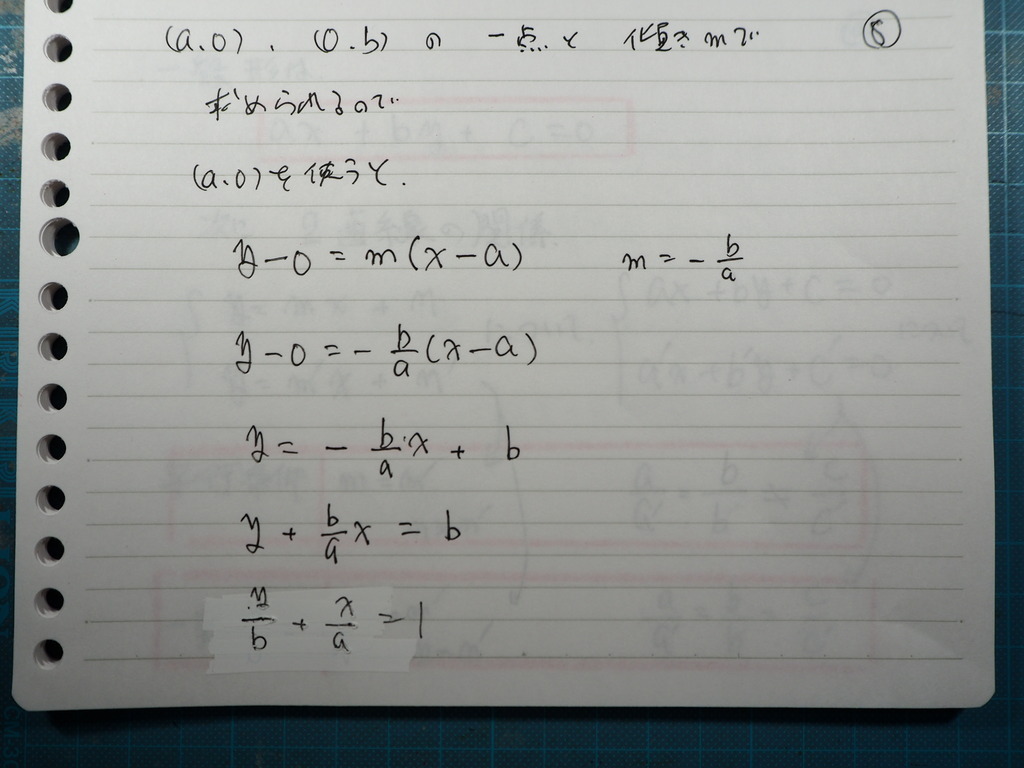 (a.0) . (0.b) の 一点と 傾き mで ⑧
求められるので
(a.0)を使うと.
y-0 = m(x-a) m = - b/a
y-0 = - b/a (x-a)
y = - b/a x + b
y + b/a x = b
y/b + x/a = 1